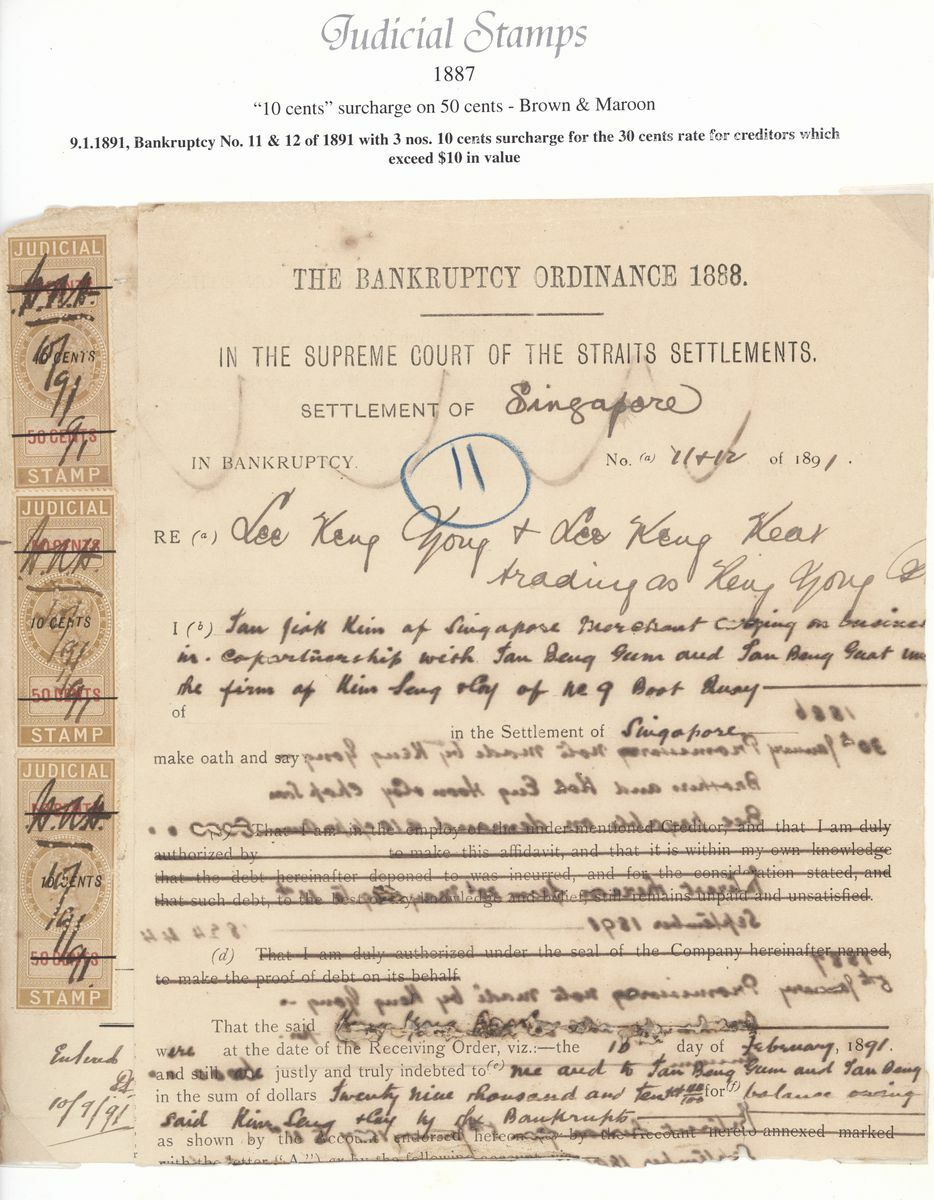 Judicial Stamps
1887
“10 cents” surcharge on 50 cents - Brown & Maroon
9.1.1891, Bankruptcy No. 11 & 12 of 1891 with 3 nos. 10 cents surcharge for the 30 cents rate for creditors which
exceed $10 in value
JUDICIAL
10 CENTS
50 CENTS
STAMP
JUDICIAL
50 CENTS
10 CENTS
50 CENTS
STAMP
JUDICIAL
10 CENTS
50 CENTS
STAMP
Entered
10/9/91
THE BANKRUPTCY ORDINANCE 1888.
IN THE SUPREME COURT OF THE STRAITS SETTLEMENTS.
SETTLEMENT OF Singapore
IN BANKRUPTCY. No. (a) 11+12 of 1891.
11
RE (a) Lee Keng Yong & Lee Keng Keat
trading as Keng Yong
I (b) Tan Jiak Kim of Singapore Merchant carrying on business
in copartnership with Tan Beng Gum and Tan Beng Guat
the firm of Kim Seng & Coy of No 9 Boat Quay
of
in the Settlement of Singapore
make oath and say
That I am in the employ of the under-mentioned Creditor, and that I am duly
authorized by to make this affidavit, and that it is within my own knowledge
that the debt hereinafter deponed to was incurred, and for the consideration stated, and
that such debt, to the best of my knowledge and belief, still remains unpaid and unsatisfied.
(d) That I am duly authorized under the seal of the Company hereinafter named,
to make the proof of debt on its behalf.
That the said
were at the date of the Receiving Order, viz.:—the 10 day of February, 1891.
and still are justly and truly indebted to (e) me and to Tan Beng Gum and Tan Beng
in the sum of dollars Twenty nine thousand and ten for (f) balance owing
said Kim Seng & Coy by the Bankrupts
as shown by the Account endorsed hereon or by the Account hereto annexed marked
with the letter (“A,”) or by the following account